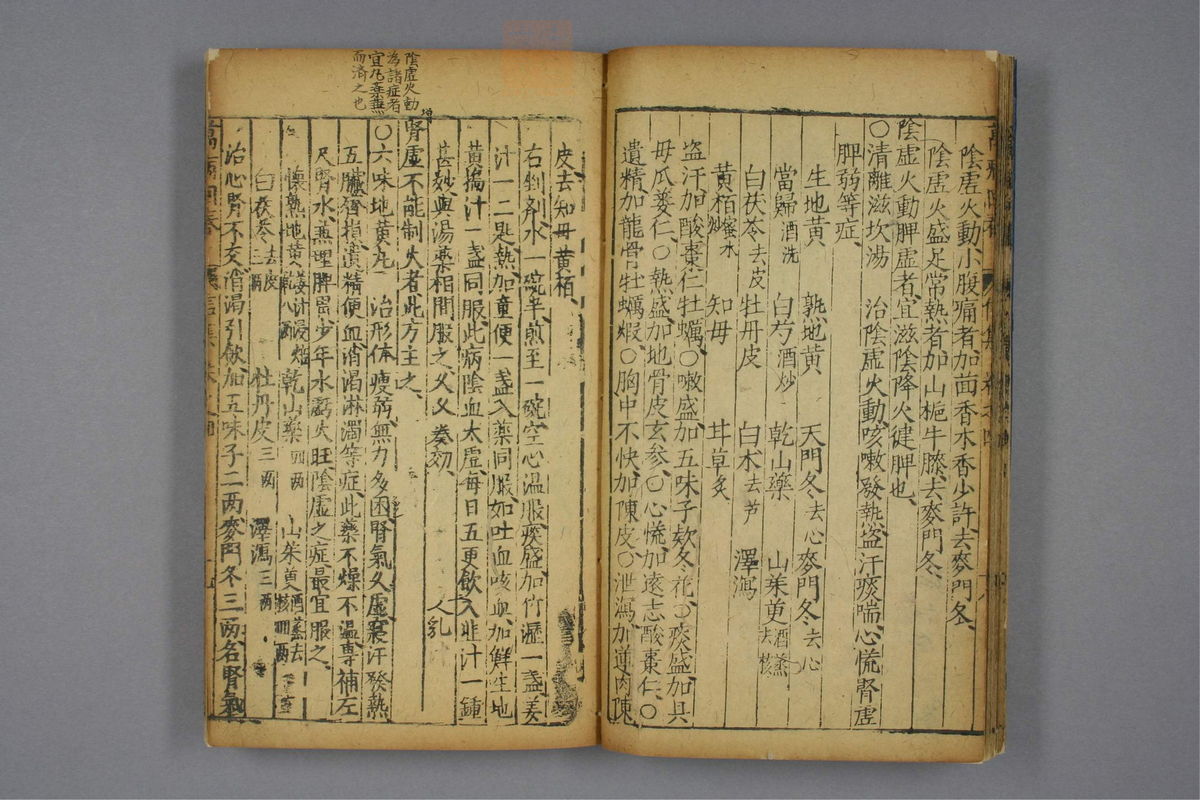 陰虛火動小腹痛者加茴香木香少許去麥門冬
陰虛火盛足常熱者加山梔牛膝去麥門冬
陰虛火動脾虛者宜滋陰降火健脾也
○清離滋坎湯 治陰虛火動咳嗽發熱盜汗痰喘心慌腎虛
脾弱等症
生地黃 熟地黃 天門冬去心 麥門冬去心
當歸酒洗 白芍酒炒 乾山藥 山茱萸酒蒸去核
白茯苓去皮 牡丹皮 白朮去芦 澤瀉
黃栢蜜水炒 知母 甘草炙
盜汗加酸棗仁牡蠣○嗽盛加五味子欬冬花○痰盛加貝
母瓜蔞仁○熱盛加地骨皮玄参○心慌加遠志酸棗仁○
遺精加龍骨牡蠣煆○胸中不快加陳皮○泄瀉加蓮肉陳
皮去知母黃栢
右剉一劑水一碗半煎至一碗空心溫服痰盛加竹瀝一盞姜
汁一二匙熱加童便一盞入藥同服如吐血咳血加鮮生地
黃搗汁一盞同服此病陰血太虛每日五更飲人乳汁一鍾
甚妙與湯藥相間服之久久奏効
人乳
陰虛火動
為諸症者
而濟之也
腎虛不能制火者此方主之
○六味地黃丸 治形体瘦弱無力多困腎氣久虛寢汗發熱
五臟齊損遺精便血消渴淋濁等症此藥不燥不溫專補左
尺腎水兼理脾胃少年水虧火旺陰虛之症最宜服之
懷熟地黃 乾山藥四兩 山茱萸酒蒸去核四兩
白茯苓去皮三兩 牡丹皮三兩 澤瀉三兩
治心腎不交消渴引飲加五味子二兩麥門冬三兩名腎氣